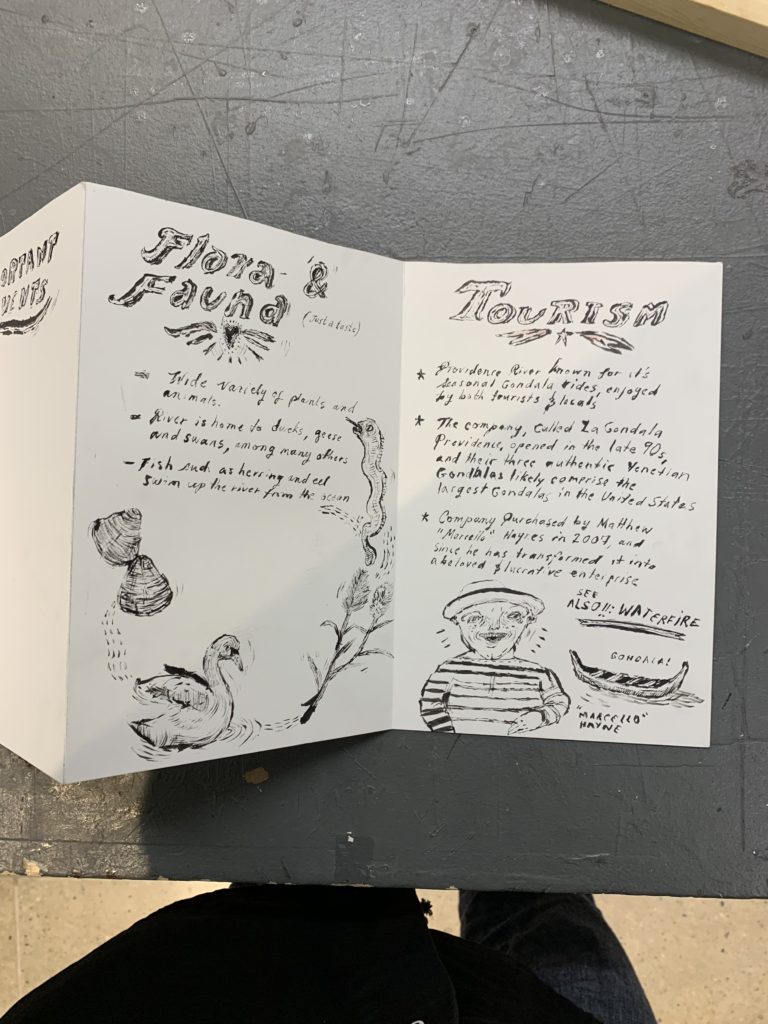 ORTANT
VENTS
Flora &
Fauna
(Just a taste)
Wide variety of plants and
animals.
River is home to ducks, geese
and swans, among many others
- Fish such as herring and eel
swim up the river from the ocean
TOURISM
* Providence River known for it's
seasonal Gondala rides, enjoyed
by both tourists & locals
* The company, called La Gondala
Providence, opened in the late 90s,
and their three authentic Venetian
Gondalas likely comprise the
largest Gondalas in the United States
* Company purchased by Matthew
"Marcello" Haynes in 2007, and
since he has transformed it into
a beloved & lucrative enterprise
SEE
ALSO!!!: WATERFIRE
GONDALA!
"MARCELLO"
HAYNE